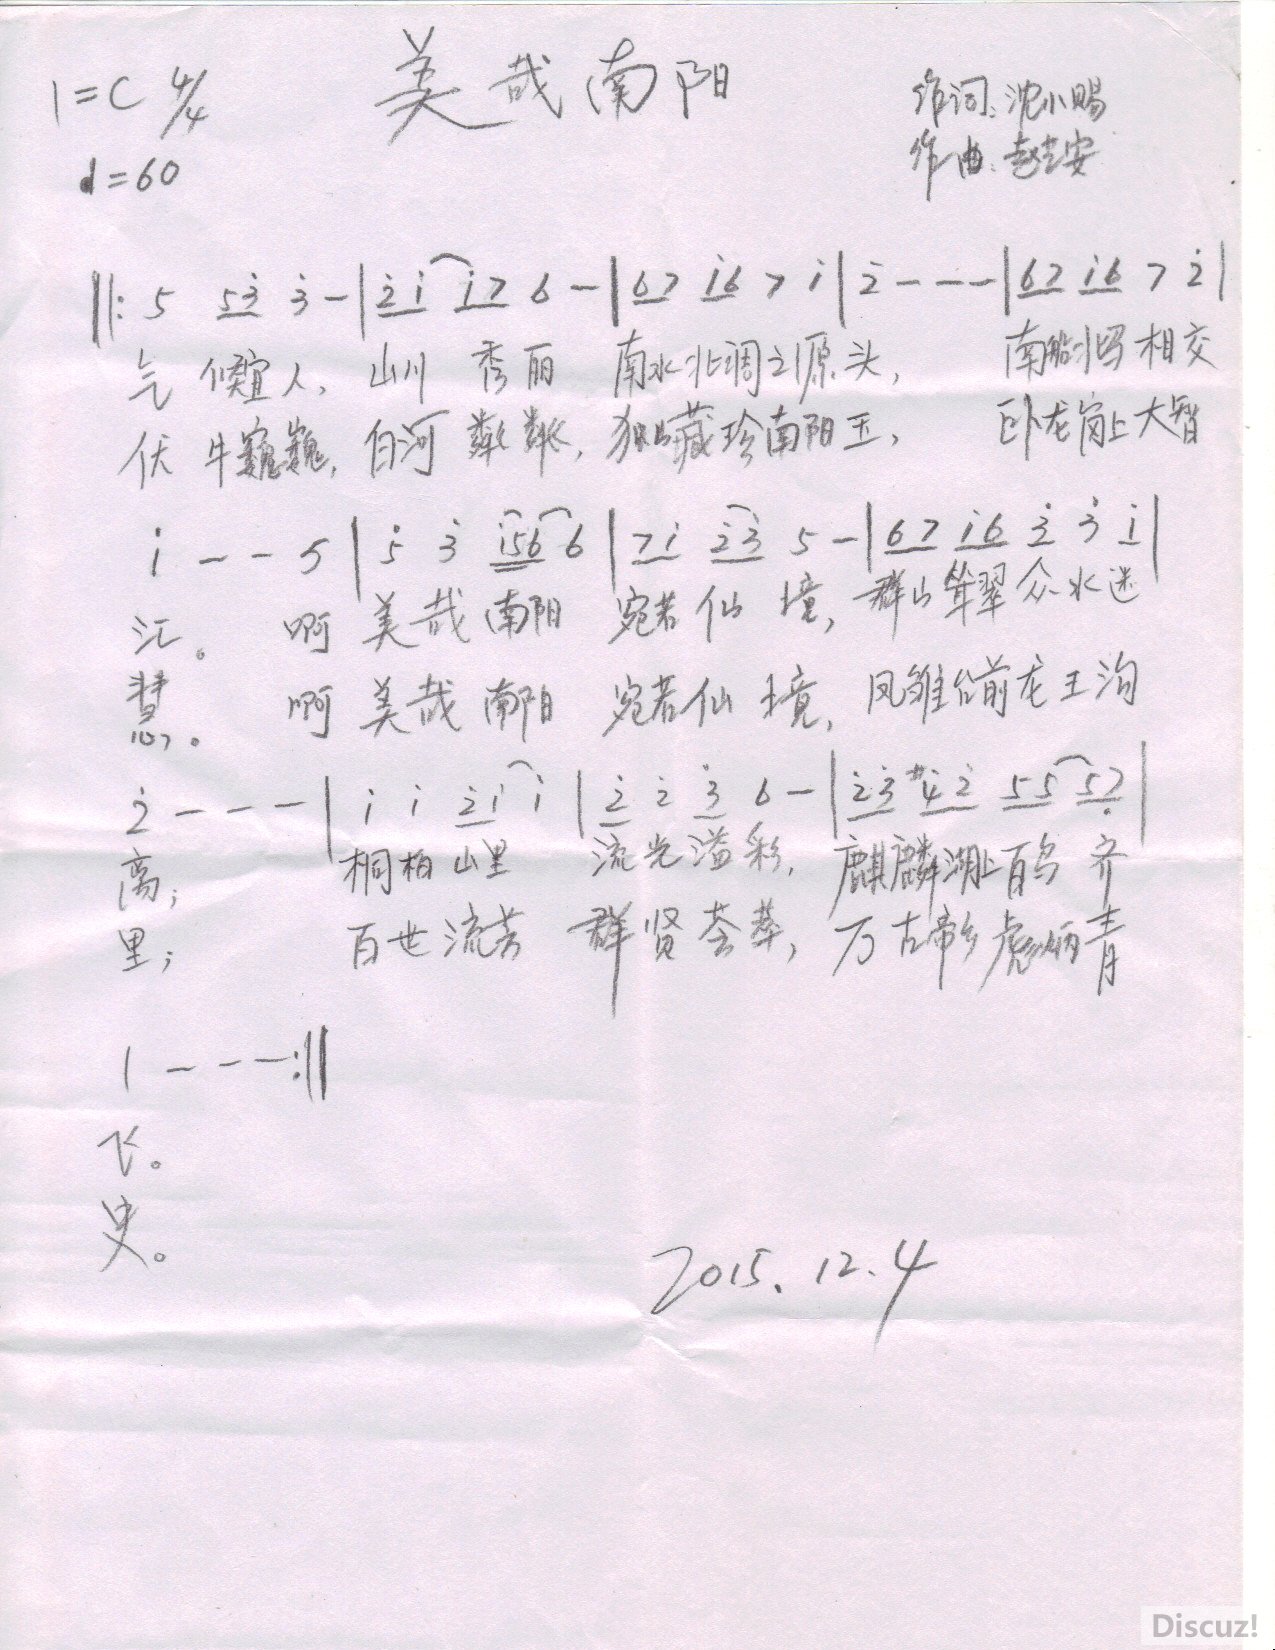 美哉南阳
1=C 4/4
作词:沈小赐
♩=60
作曲:赵云安
‖: 5 53̇ 3̇ - | 2̇1̇ 1̇7 6 - | 67 1̇6 7 1̇ | 2̇ - - - | 67 1̇6 7 2̇ |
气候宜人, 山川秀丽 南水北调之源头, 南船北马相交
伏牛巍巍, 白河粼粼, 独山藏珍南阳玉, 卧龙岗上大智
1̇ - - 5 | 5̇ 3̇ 1̇56 6 | 71̇ 2̇3̇ 5 - | 67 1̇6 3̇ 3̇ 1̇ |
江。 啊 美哉南阳 宛若仙境, 群山耸翠众水迷
慧。 啊 美哉南阳 宛若仙境, 凤雏台前龙王沟
2̇ - - - | 1̇ 1̇ 2̇1̇ 1̇ | 2̇ 2̇ 3̇ 6 - | 2̇3̇ #4̇2̇ 55 57̣ |
离; 桐柏山里 流光溢彩, 麒麟湖上百鸟齐
里; 百世流芳 群贤荟萃, 万古帝乡彪炳青
1 - - - :‖
飞。
史。
2015.12.4
Discuz!